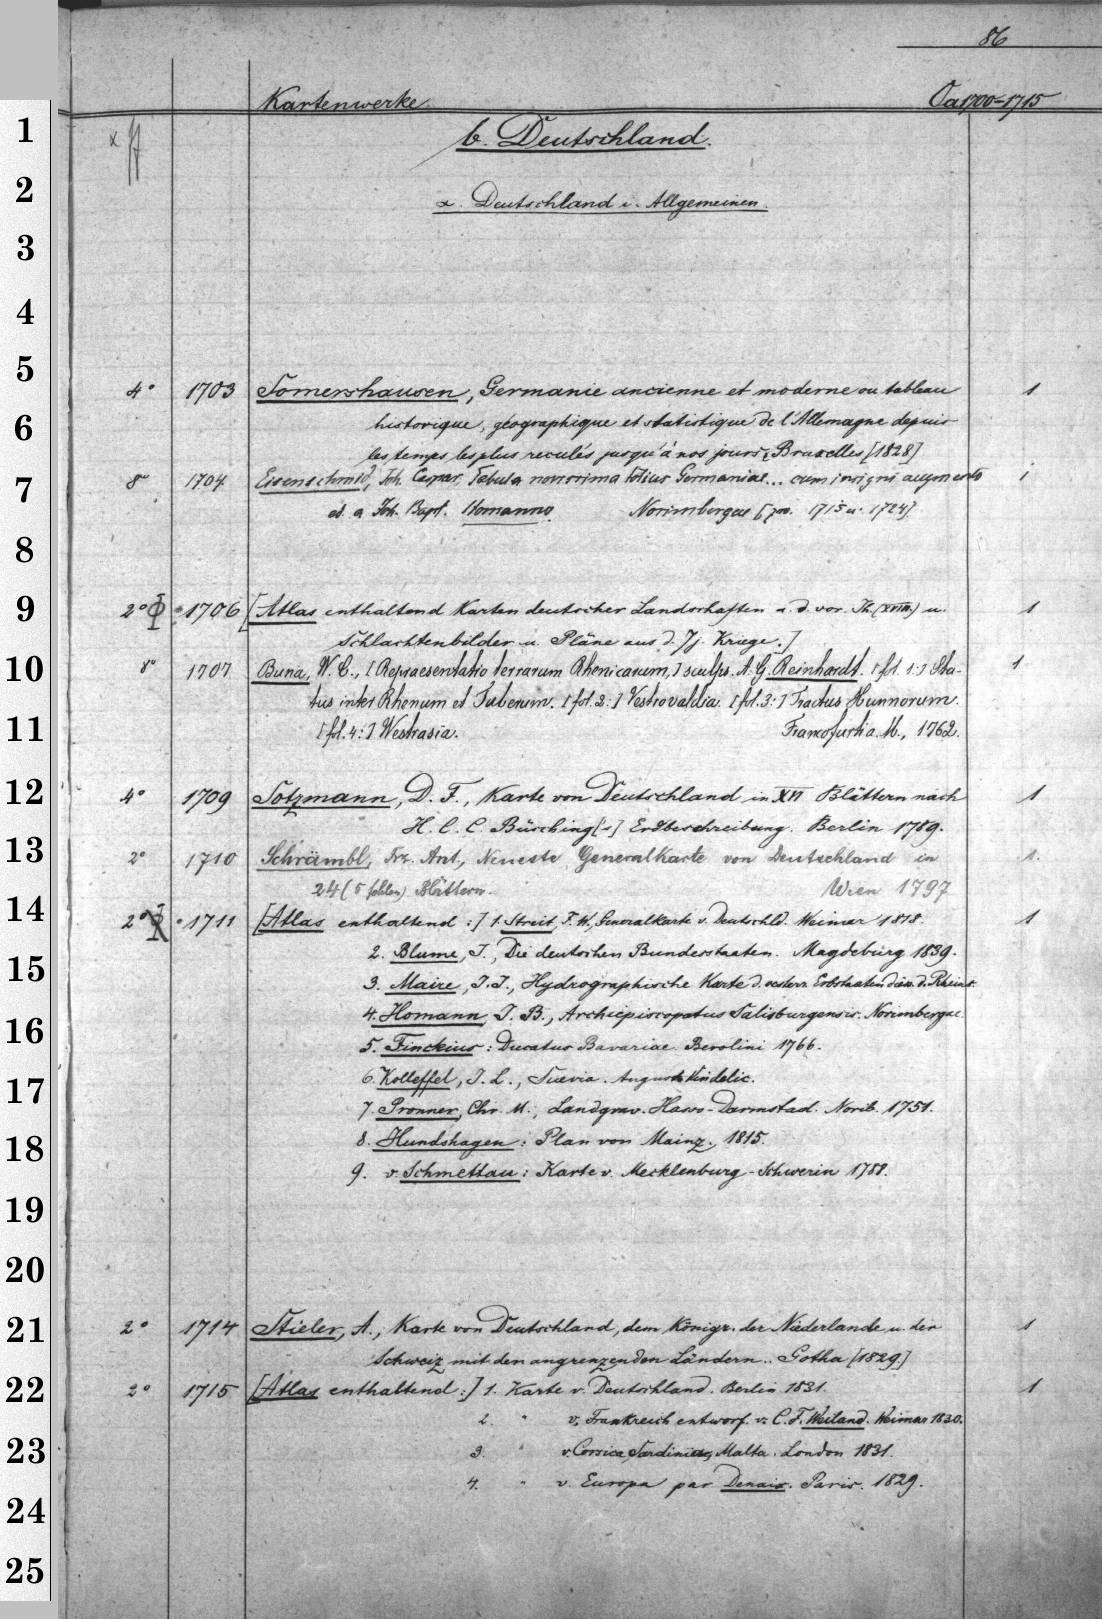 86
Kartenwerke. Oa1700-1715
b. Deutschland.
α. Deutschland i. Allgemeinen.
4° 1703 Somershausen, Germanie ancienne et moderne ou tableau 1
historique, géographique et statistique de l'Allemagne depuis
les temps les plus reculés jusqu'à nos jours. Bruxelles [1828]
8° 1704 Eisenschmid, Joh. Caspar, Tabula novissima totius Germaniae... cum insigni augmento 1
ed. a Joh. Bapt. Homanno. Norimbergae [zw. 1715 u. 1724].
2° 1706 [Atlas enthaltend Karten deutscher Landschaften a. d. vor. Jh. (XVIII.) u. 1
Schlachtenbilder u. Pläne aus d. 7j. Kriege.]
8° 1707 Buna, W. C., [Repraesentatio terrarum Rhenicarum,] sculps. A. G. Reinhardt. [fol. 1:] Sta- 1
tus inter Rhenum et Tuberum. [fol. 2:] Vestrovaldia. [fol. 3:] Tractus Hunnorum.
[fol. 4:] Westrasia. Francofurtia. M., 1762.
4° 1709 Sotzmann, D. F., Karte von Deutschland in XVI Blättern nach 1
H. C. C. Büsching[-s] Erdbeschreibung. Berlin 1789.
2° 1710 Schrämbl, Frz. Ant., Neueste Generalkarte von Deutschland in 1.
24 (5 fehlen) Blättern. Wien 1797
2° 1711 [Atlas enthaltend:] 1. Streit, F. W., Generalkarte v. Deutschld. Weimar 1818. 1
2. Blume, J., Die deutschen Bundesstaaten. Magdeburg 1839.
3. Maire, J. J., Hydrographische Karte d. oesterr. Erbstaaten diess. d. Rheins.
4. Homann, J. B., Archiepiscopatus Salisburgensis. Norimbergae.
5. Finckius: Ducatus Bavariae. Berolini 1766.
6. Kolleffel, J. L., Suevia. August. Vindelic.
7. Pronner, Chr. M., Landgrav. Hass-Darmstad. Norib. 1751.
8. Hundshagen: Plan von Mainz, 1815.
9. v. Schmettau: Karte v. Mecklenburg-Schwerin 1788.
2° 1714 Stieler, A., Karte von Deutschland, dem Königr. der Niederlande u. der 1
Schweiz mit den angrenzenden Ländern.. Gotha [1829]
2° 1715 [Atlas enthaltend:] 1. Karte v. Deutschland. Berlin 1831. 1
2. " v. Frankreich entworf. v. C. F. Weiland. Weimar 1830.
3. " v. Corsica, Sardinien, Malta. London 1831.
4. " v. Europa par Denaix. Paris. 1829.
1
2
3
4
5
6
7
8
9
10
11
12
13
14
15
16
17
18
19
20
21
22
23
24
25